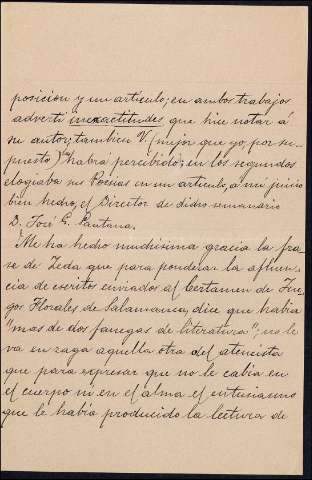 posicion y un artículo; en ambos trabajos
advertí inexactitudes que hice notar á
su autor; tambien V. (mejor que yo, por su-
puesto) las habrá percibido; en los segundos
elogiaba sus Poesias en un artículo, á mi juicio
bien hecho, el Director de dicho semanario
D. José G. Santana.
Me ha hecho muchisima gracia la fra-
se de Zeda que para ponderar la afluen-
cia de escritos enviados al Certamen de Jue-
gos Florales de Salamanca, dice que habia
"mas de dos fanegas de literatura"; no le
va en zaga aquella otra del ateneista
que para expresar que no le cabia en
el cuerpo ni en el alma el entusiasmo
que le habia producido la lectura de